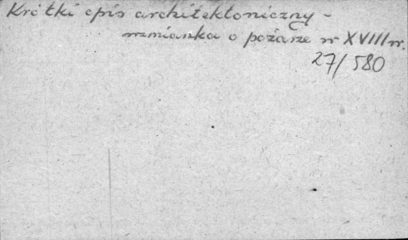 Krótki opis architektoniczny -
wzmianka o pożarze w XVIII w.
27/580